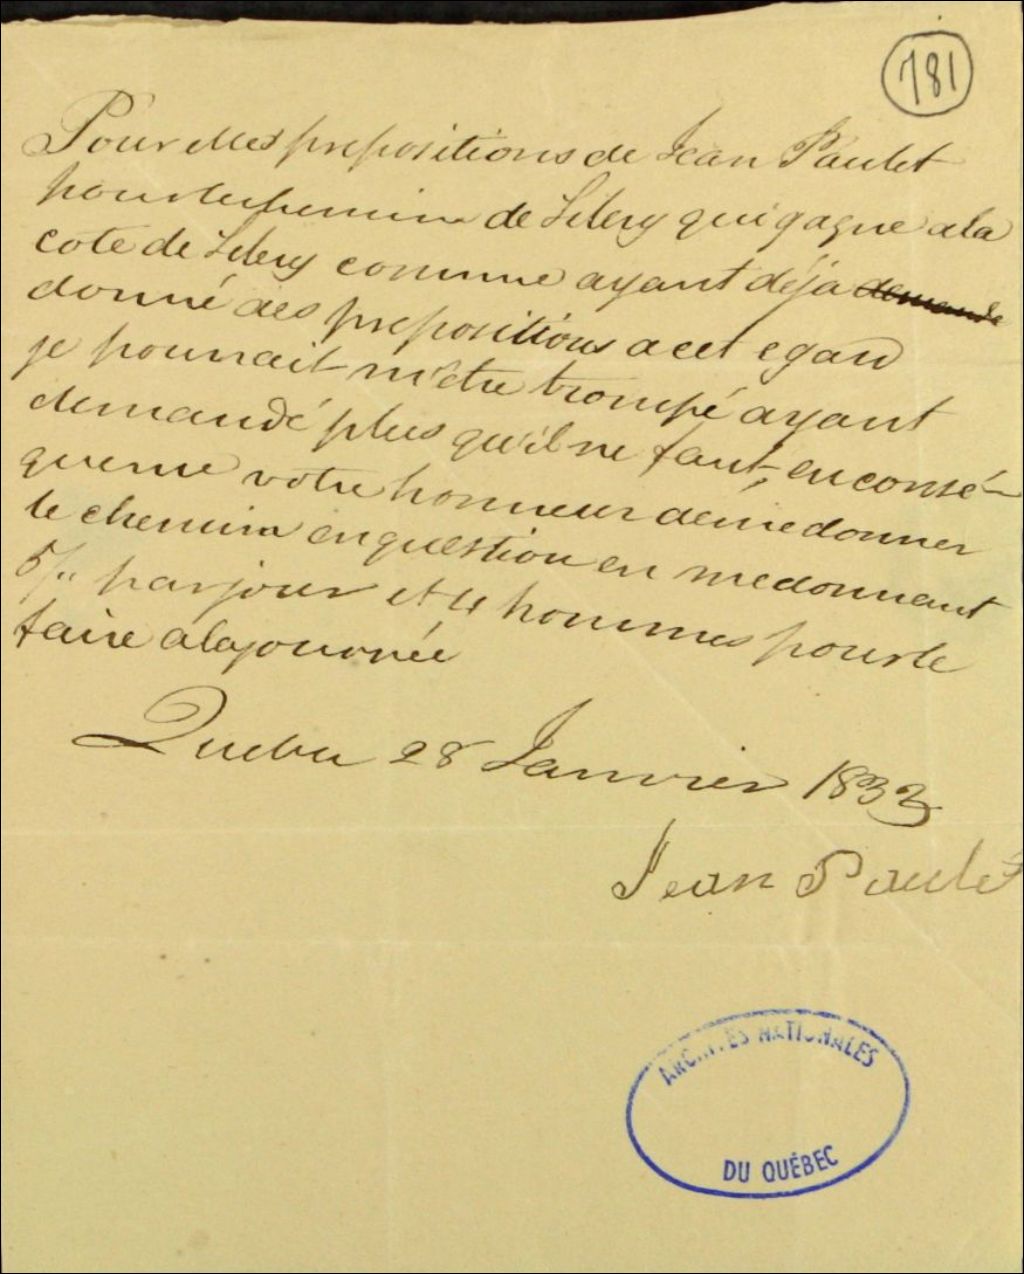 181
Pour Mes prepositions de Jean Paulet
pour le chemin de Lilery qui gagne a la
cote de Lilery comme ayant déja demande
donné des prepositions a cet egard
je pourrait m'etre trompé ayant
demandé plus qu'il ne faut, en consé-
quence votre honneur de me donner
le chemin en question en me donnant
5/" par jour et 4 hommes pour le
faire a la journée
Quebec 28 Janvier 1833
Jean Paulet
ARCHIVES NATIONALES
DU QUÉBEC